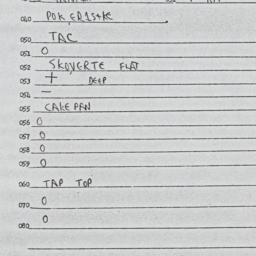 040
050 TAC
051 O
052 SKOVERTE FLAT
053 + DEEP
054 –
055 CAKE PAN
056 O
057 O
058 O
059 O
060 TAP TOP
070 O
O
080